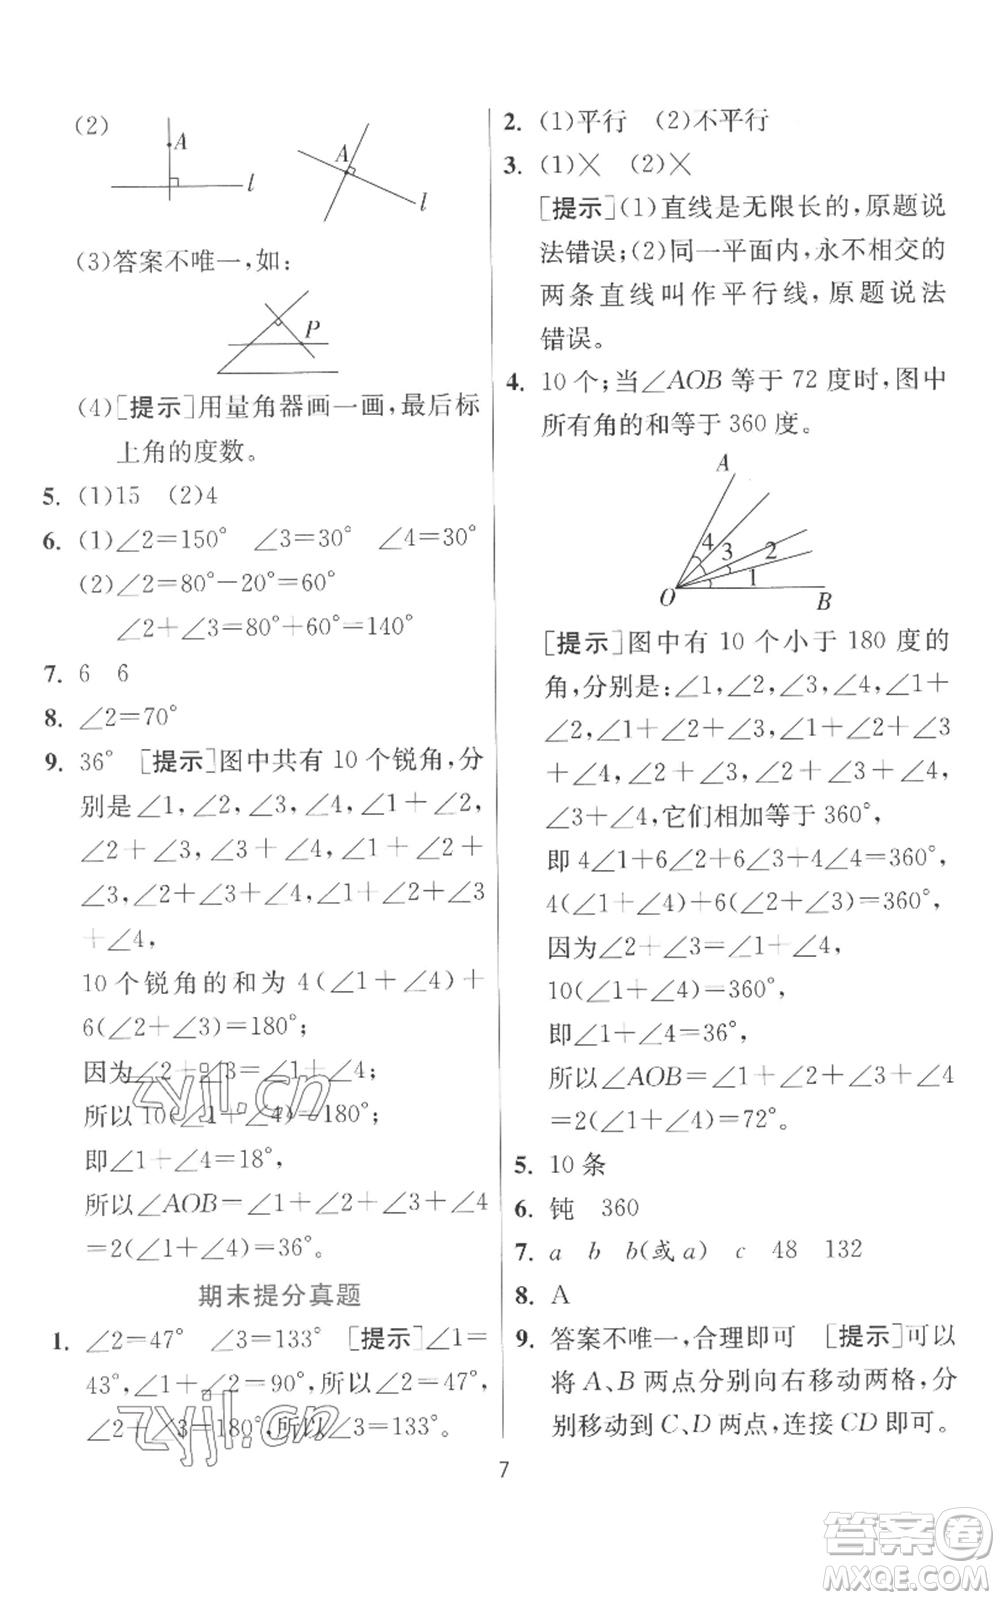 (2)
A
l
A
l
(3)答案不唯一,如:
P
(4)[提示]用量角器画一画,最后标
上角的度数。
5. (1)15 (2)4
6. (1)∠2=150° ∠3=30° ∠4=30°
(2)∠2=80°-20°=60°
∠2+∠3=80°+60°=140°
7. 6 6
8. ∠2=70°
9. 36° [提示]图中共有 10 个锐角,分
别是∠1,∠2,∠3,∠4,∠1+∠2,
∠2+∠3,∠3+∠4,∠1+∠2+
∠3,∠2+∠3+∠4,∠1+∠2+∠3
+∠4,
10 个锐角的和为 4(∠1+∠4)+
6(∠2+∠3)=180°;
因为∠2+∠3=∠1+∠4;
所以 10(∠1+∠4)=180°;
即∠1+∠4=18°,
所以∠AOB=∠1+∠2+∠3+∠4
=2(∠1+∠4)=36°。
期末提分真题
1. ∠2=47° ∠3=133° [提示]∠1=
43°,∠1+∠2=90°,所以∠2=47°,
∠2+∠3=180°,所以∠3=133°。
zyjl.cn
zyjl.cn
2. (1)平行 (2)不平行
3. (1)× (2)×
[提示](1)直线是无限长的,原题说
法错误;(2)同一平面内,永不相交的
两条直线叫作平行线,原题说法
错误。
4. 10 个;当∠AOB 等于 72 度时,图中
所有角的和等于 360 度。
A
4
3
2
1
O
B
[提示]图中有 10 个小于 180 度的
角,分别是:∠1,∠2,∠3,∠4,∠1+
∠2,∠1+∠2+∠3,∠1+∠2+∠3
+∠4,∠2+∠3,∠2+∠3+∠4,
∠3+∠4,它们相加等于 360°,
即 4∠1+6∠2+6∠3+4∠4=360°,
4(∠1+∠4)+6(∠2+∠3)=360°,
因为∠2+∠3=∠1+∠4,
10(∠1+∠4)=360°,
即∠1+∠4=36°,
所以∠AOB=∠1+∠2+∠3+∠4
=2(∠1+∠4)=72°。
5. 10 条
6. 钝 360
7. a b b(或 a) c 48 132
8. A
9. 答案不唯一,合理即可 [提示]可以
将 A、B 两点分别向右移动两格,分
别移动到 C、D 两点,连接 CD 即可。
7
答案卷
MXQE.COM